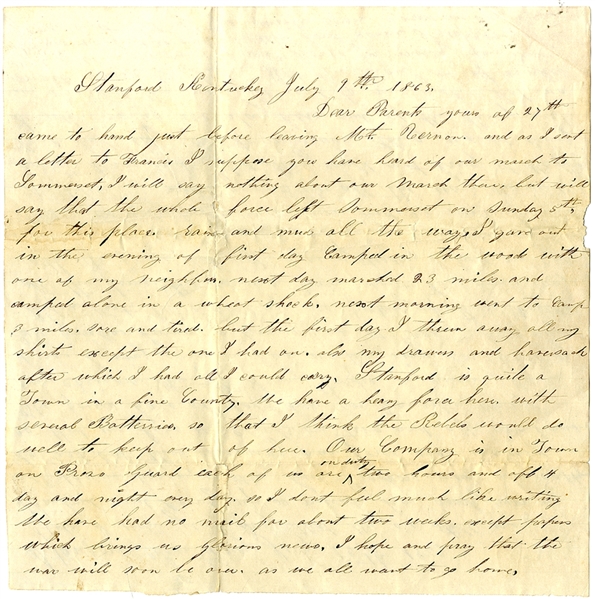 Stanford Kentuckey July 9th 1863.
Dear Parents yours of 27th
came to hand just before leaving Mt. Vernon. and as I sent
a letter to Francis I suppose you have hard of our march to
Sommerset, I will say nothing about our March there, but will
say that the whole force left Sommerset on Sunday 5th,
for this place. rain and mud all the way, I gave out
in the evening of first day Camped in the wood with
one of my neighbors. next day marched 23 miles. and
camped alone in a wheat shock, next morning went to Camp
3 miles. sore and tired. but the first day I threw away all my
shirts except the one I had on. also my drawers and haversack
after which I had all I could cary. Stanford is quite a
Town in a fine County. We have a heavy force here. with
several Batterries, so that I think the Rebels would do
well to keep out of here. Our Company is in Town
on Provo Guard each of us are on duty two hours and off 4
day and night every day. so I dont feel much like writing
We have had no mail for about two weeks. except papers
which brings us glorious news, I hope and pray that the
war will soon be over. as we all want to go home,